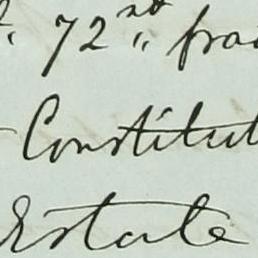 72nd
Constitut
Estate